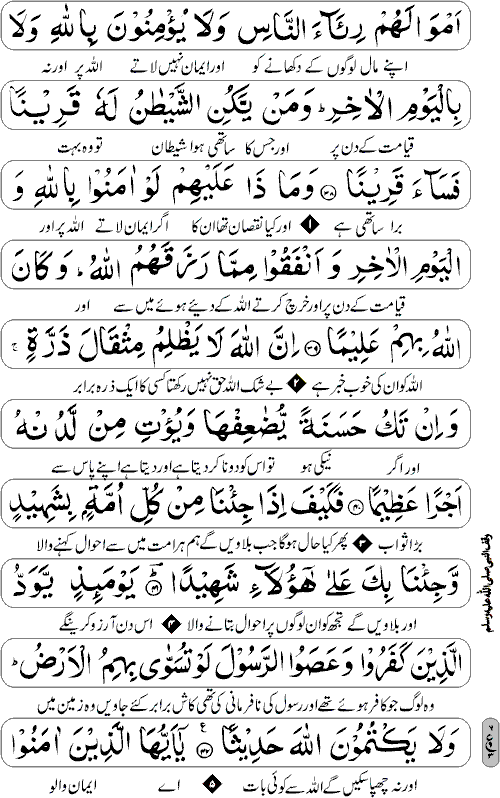 اَمْوَالَهُمْ رِئَآءَ النَّاسِ وَلَا يُؤْمِنُوْنَ بِاللّٰهِ وَلَا
اپنے مال لوگوں کے دکھانے کو اور ایمان نہیں لاتے اللہ پر اور نہ
بِالْيَوْمِ الْاٰخِرِ ؕ وَمَنْ يَّكُنِ الشَّيْطٰنُ لَهٗ قَرِيْنًا
قیامت کے دن پر اور جس کا ساتھی ہوا شیطان تو وہ بہت
فَسَآءَ قَرِيْنًا ﴿۳۸﴾ وَمَا ذَا عَلَيْهِمْ لَوْ اٰمَنُوْا بِاللّٰهِ وَ
برا ساتھی ہے ۱ اور کیا نقصان تھا ان کا اگر ایمان لاتے اللہ پر اور
الْيَوْمِ الْاٰخِرِ وَ اَنْفَقُوْا مِمَّا رَزَقَهُمُ اللّٰهُ ؕ وَ كَانَ
قیامت کے دن پر اور خرچ کرتے اللہ کے دیئے ہوئے میں سے اور
اللّٰهُ بِهِمْ عَلِيْمًا ﴿۳۹﴾ اِنَّ اللّٰهَ لَا يَظْلِمُ مِثْقَالَ ذَرَّةٍ ۚ
اللہ کو ان کی خوب خبر ہے ۲ بے شک اللہ حق نہیں رکھتا کسی کا ایک ذرہ برابر
وَ اِنْ تَكُ حَسَنَةً يُّضٰعِفْهَا وَيُؤْتِ مِنْ لَّدُنْهُ
اور اگر نیکی ہو تو اس کو دونا کر دیتا ہے اور دیتا ہے اپنے پاس سے
اَجْرًا عَظِيْمًا ﴿۴۰﴾ فَكَيْفَ اِذَا جِئْنَا مِنْ كُلِّ اُمَّةٍۭ بِشَهِيْدٍ
بڑا ثواب ۳ پھر کیا حال ہوگا جب بلاویں گے ہم ہر امت میں سے احوال کہنے والا
وَّجِئْنَا بِكَ عَلٰى هٰٓؤُلَآءِ شَهِيْدًا ﴿۴۱﴾ يَوْمَئِذٍ يَّوَدُّ
اور بلاویں گے تجھ کو ان لوگوں پر احوال بتانے والا ۴ اس دن آرزو کرینگے
الَّذِيْنَ كَفَرُوْا وَعَصَوُا الرَّسُوْلَ لَوْ تُسَوّٰى بِهِمُ الْاَرْضُ ؕ
وہ لوگ جو کافر ہوئے تھے اور رسول کی نافرمانی کی تھی کاش برابر کئے جاویں وہ زمین میں
وَلَا يَكْتُمُوْنَ اللّٰهَ حَدِيْثًا ﴿۴۲﴾ يٰٓاَيُّهَا الَّذِيْنَ اٰمَنُوْا
اور نہ چھپا سکیں گے اللہ سے کوئی بات ۵ اے ایمان والو
وقف النبی صلی اللہ علیہ وسلم